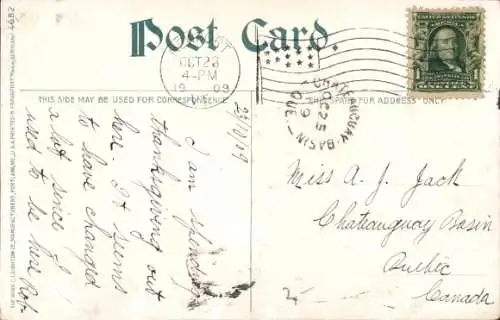 Post Card.
OCT 23
4-PM
1909
UNITED STATES
1 1
ONE CENT
CHATEAUGUAY-BASIN
OC 25
09
QUE
THIS SIDE MAY BE USED FOR CORRESPONDENCE
THIS SPACE FOR ADDRESS ONLY.
I am spending
thanksgiving out
here. It seems
to have changed
a lot since I
used to be here Rob.
Miss A. J. Jack
Chateauguay Basin
Quebec
Canada
THE HUGH C. LEIGHTON CO., MANUFACTURERS, PORTLAND, ME., U.S.A. PRINTED IN FRANKFORT
6682